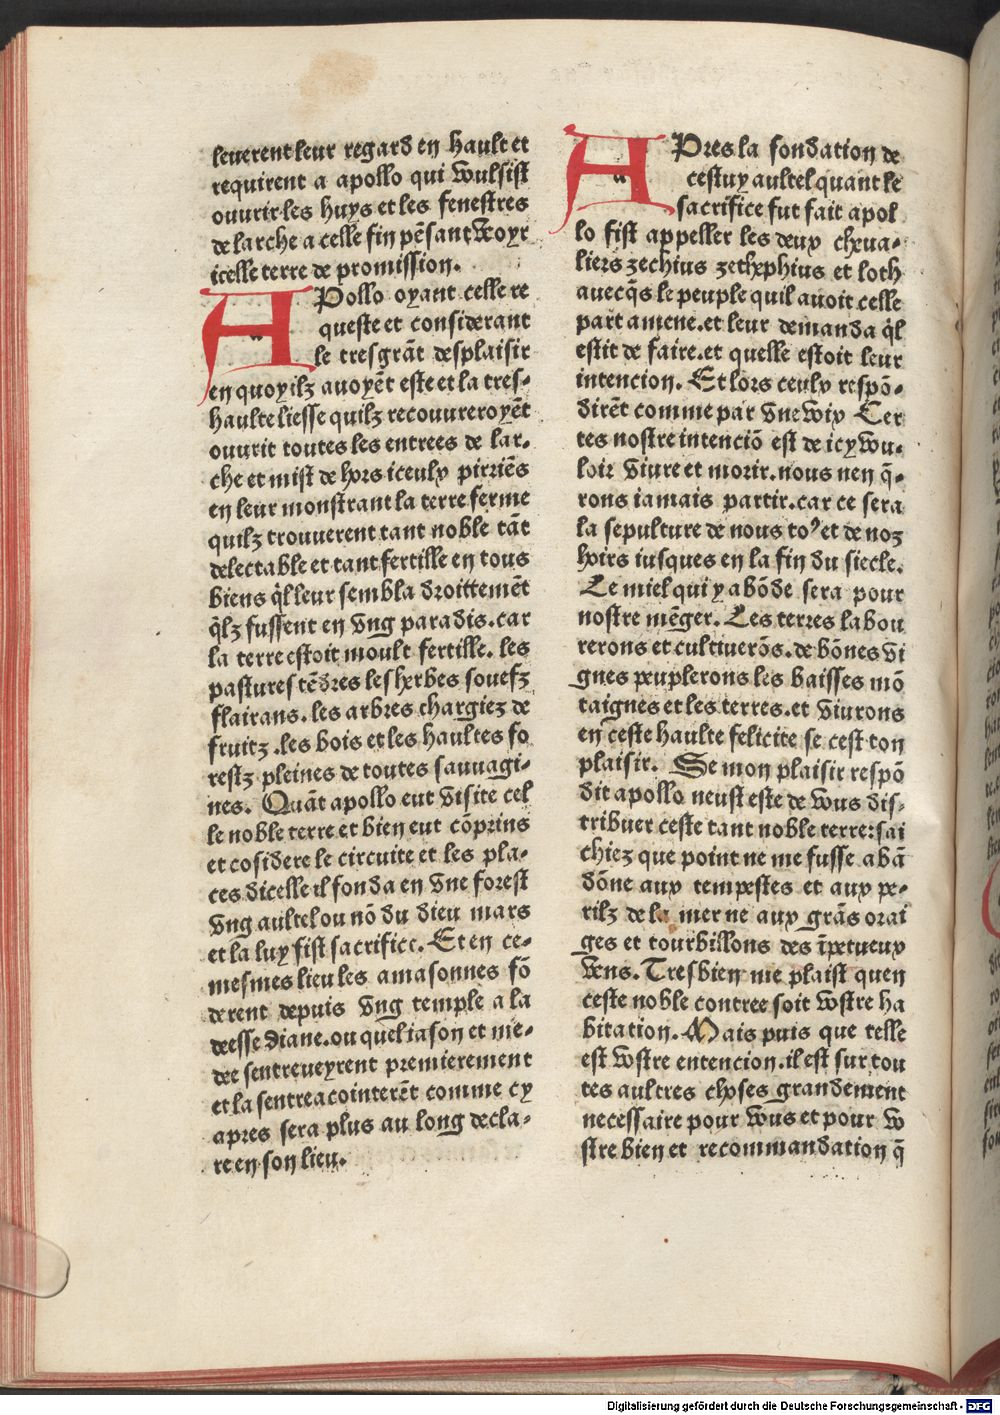 leuerent leur regard en hault et
requirent a apollo qui voulsist
ouurir les huys et les fenestres
de larche a celle fin pẽsant veoyr
icelle terre de promission.
APollo oyant celle re
queste et considerant
le tresgrãt desplaisir
en quoy ilz auoyẽt este et la tres-
haulte liesse quilz recouureroyẽt
ouurit toutes les entrees de lar-
che et mist de hors iceulx pirriẽs
en leur monstrant la terre ferme
quilz trouuerent tant noble tãt
delectable et tant fertille en tous
biens q̃l leur sembla droittemẽt
q̃lz fussent en vng paradis. car
la terre estoit moult fertille. les
pastures tẽdres les herbes souefz
flairans. les arbres chargiez de
fruitz. les bois et les haultes fo
restz pleines de toutes sauuagi-
nes. Quãt apollo eut visite cel
le noble terre et bien eut cõprins
et cosidere le circuite et les pla-
ces dicelle il fonda en vne forest
vng aultel ou nõ du dieu mars
et la luy fist sacrifice. Et en ce-
mesmes lieu les amasonnes fõ
derent depuis vng temple a la
deesse diane. ou quel iason et me-
dee sentreueyrent premierement
et la sentreacointerẽt comme cy
apres sera plus au long decla-
re en son lieu.
APres la fondation de
cestuy aultel quant le
sacrifice fut fait apol
lo fist appeller les deux cheua-
liers zechius zethephius et loth
auecq̃s le peuple quil auoit celle
part amene. et leur demanda q̃l
estit de faire. et quelle estoit leur
intencion. Et lors ceulx respõ-
dirẽt comme par vne voix Cer
tes nostre intenciõ est de icy vou-
loir viure et morir. nous nen q̃-
rons iamais partir. car ce sera
la sepulture de nous to⁹ et de noz
hoirs iusques en la fin du siecle.
Le miel qui y abõde sera pour
nostre mẽger. Les terres labou
rerons et cultiuerõs. de bõnes vi
gnes peuplerons les baisses mõ
taignes et les terres. et viurons
en ceste haulte felicite se cest ton
plaisir. Se mon plaisir respõ
dit apollo neust este de vous dis-
tribuer ceste tant noble terre: sai
chiez que point ne me fusse abã
dõne aux tempestes et aux pe-
rilz de la mer ne aux grãs orai
ges et tourbillons des ĩpetueux
vens. Tresbien me plaist quen
ceste noble contree soit vostre ha
bitation. Mais puis que telle
est vostre entencion. il est sur tou
tes aultres choses grandement
necessaire pour vous et pour vo
stre bien et recommandation q̃
Digitalisierung gefördert durch die Deutsche Forschungsgemeinschaft - DFG